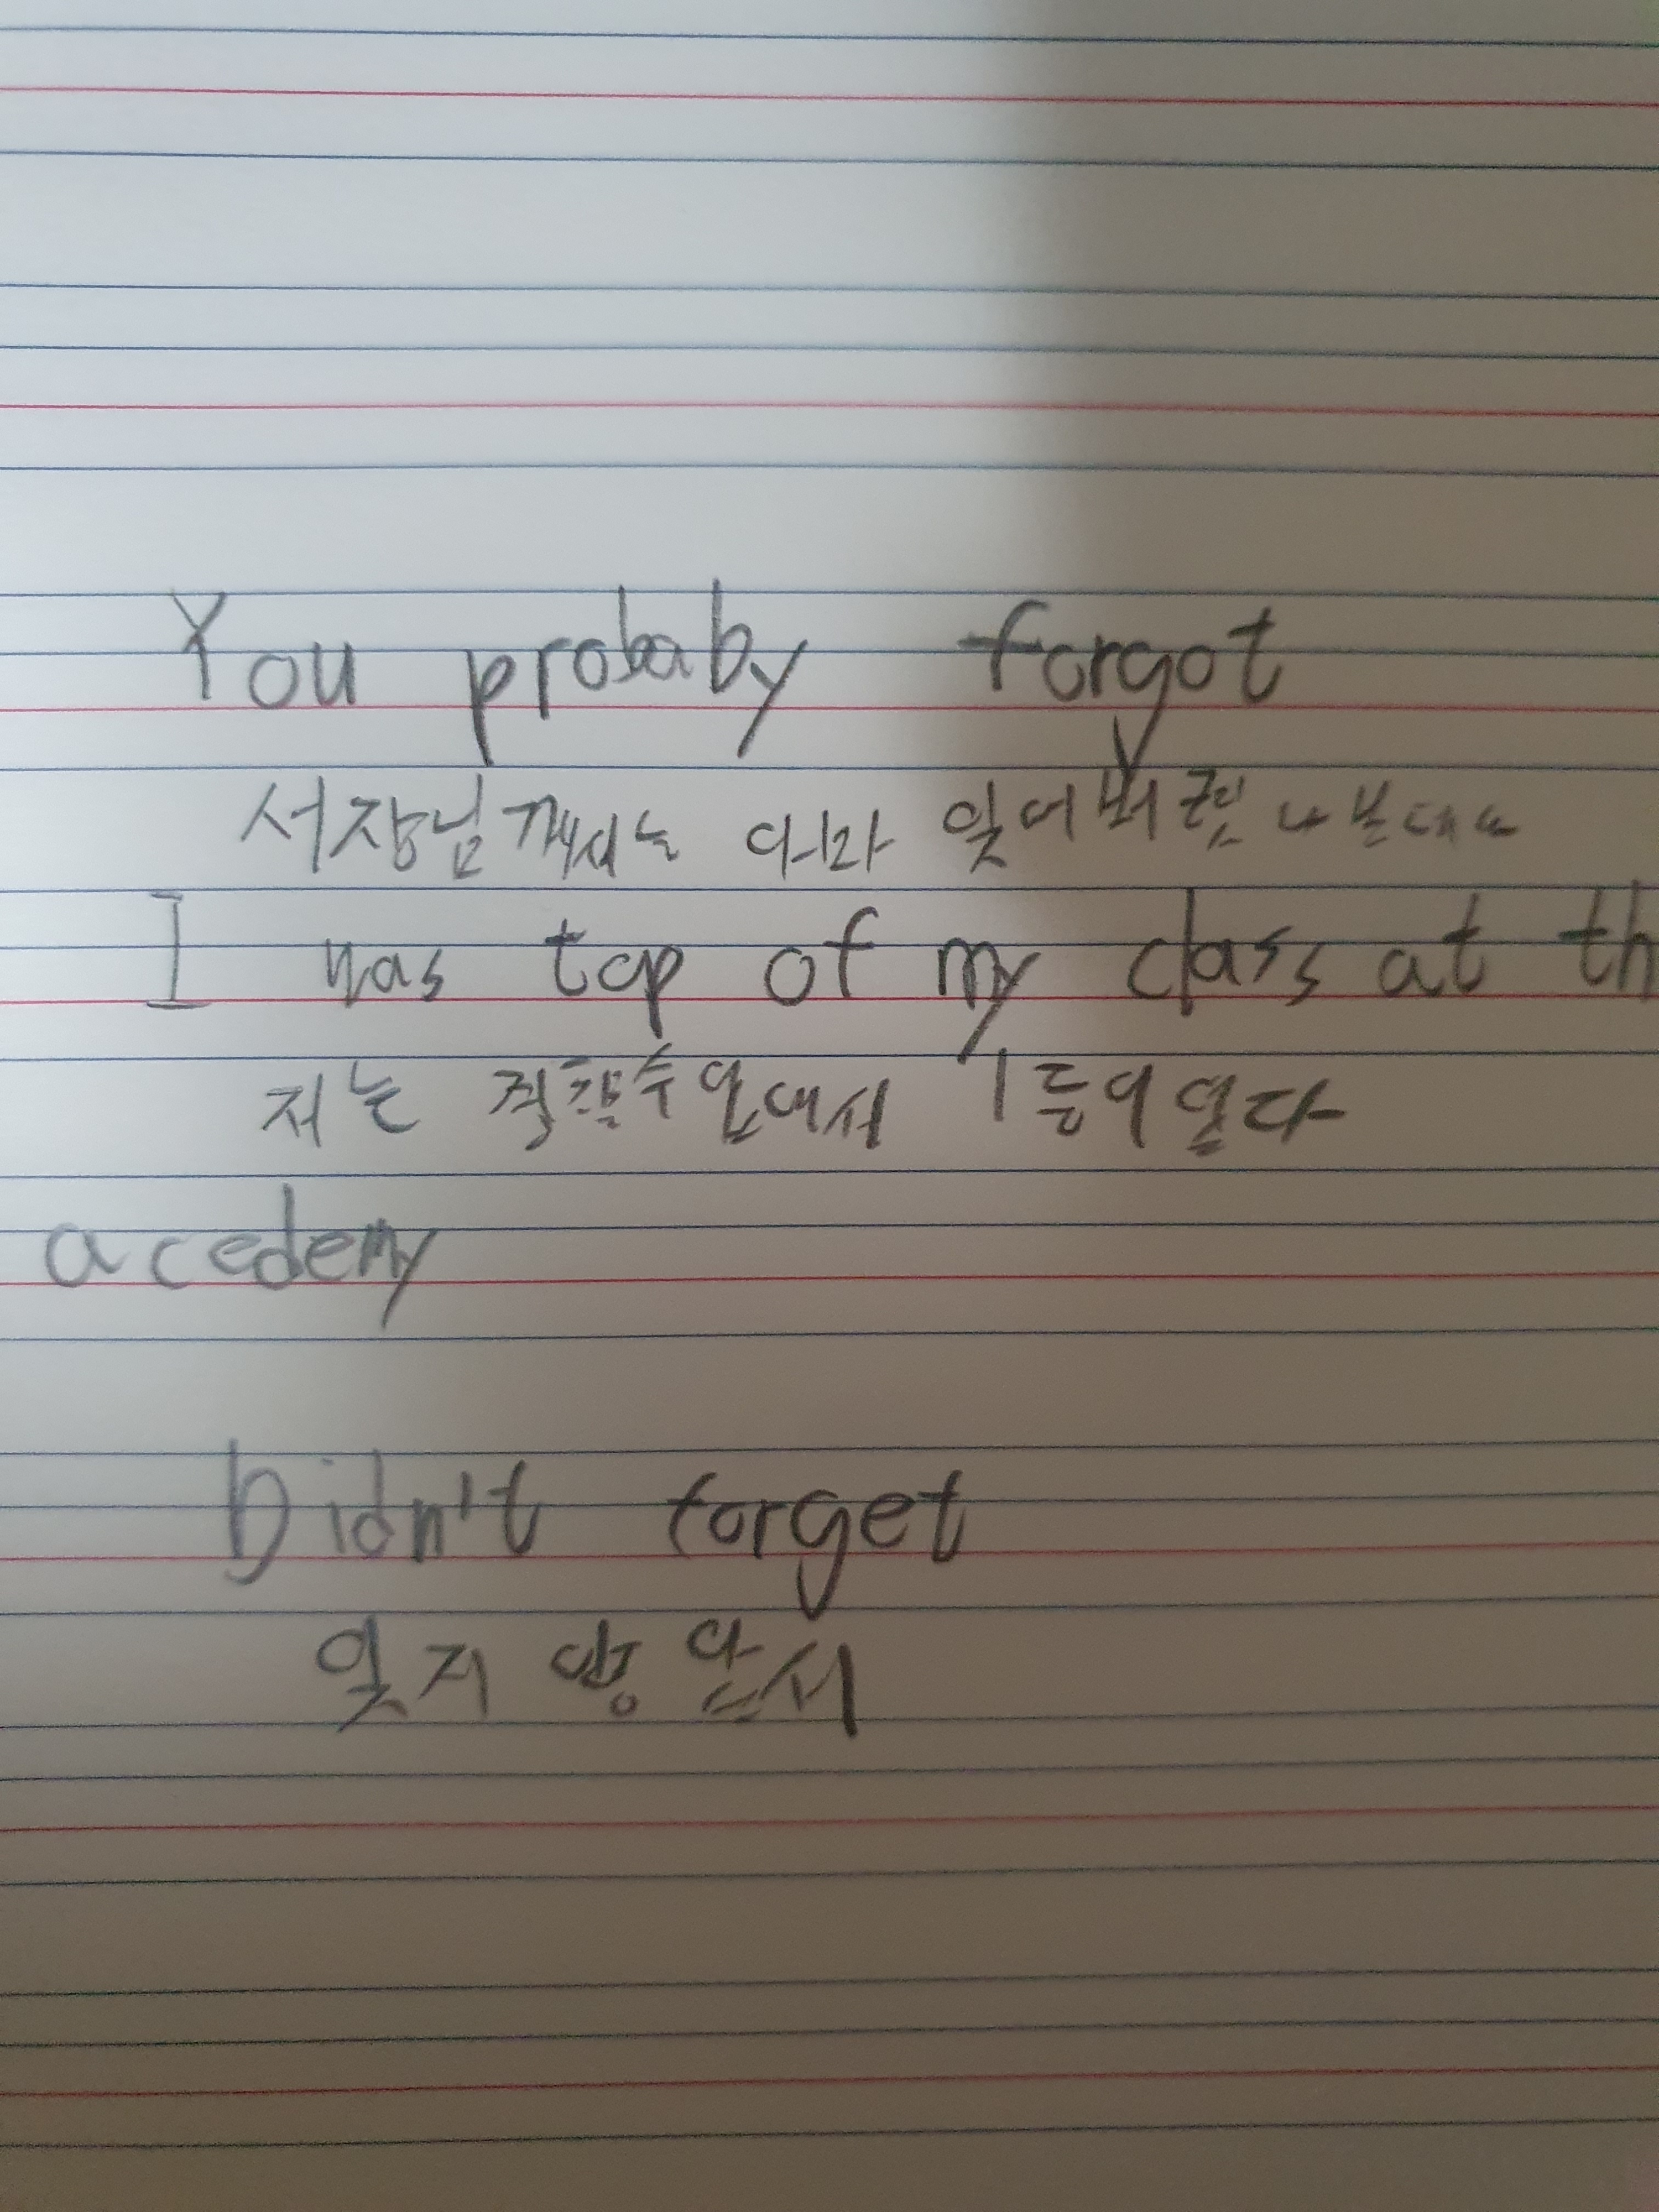 You probaby forgot
서장님께서는 아마 잊어버렸나 본데요
I was top of my class at th
저는 경찰수업에서 1등이였다
acedemy
Didn't forget
잊지 않았서